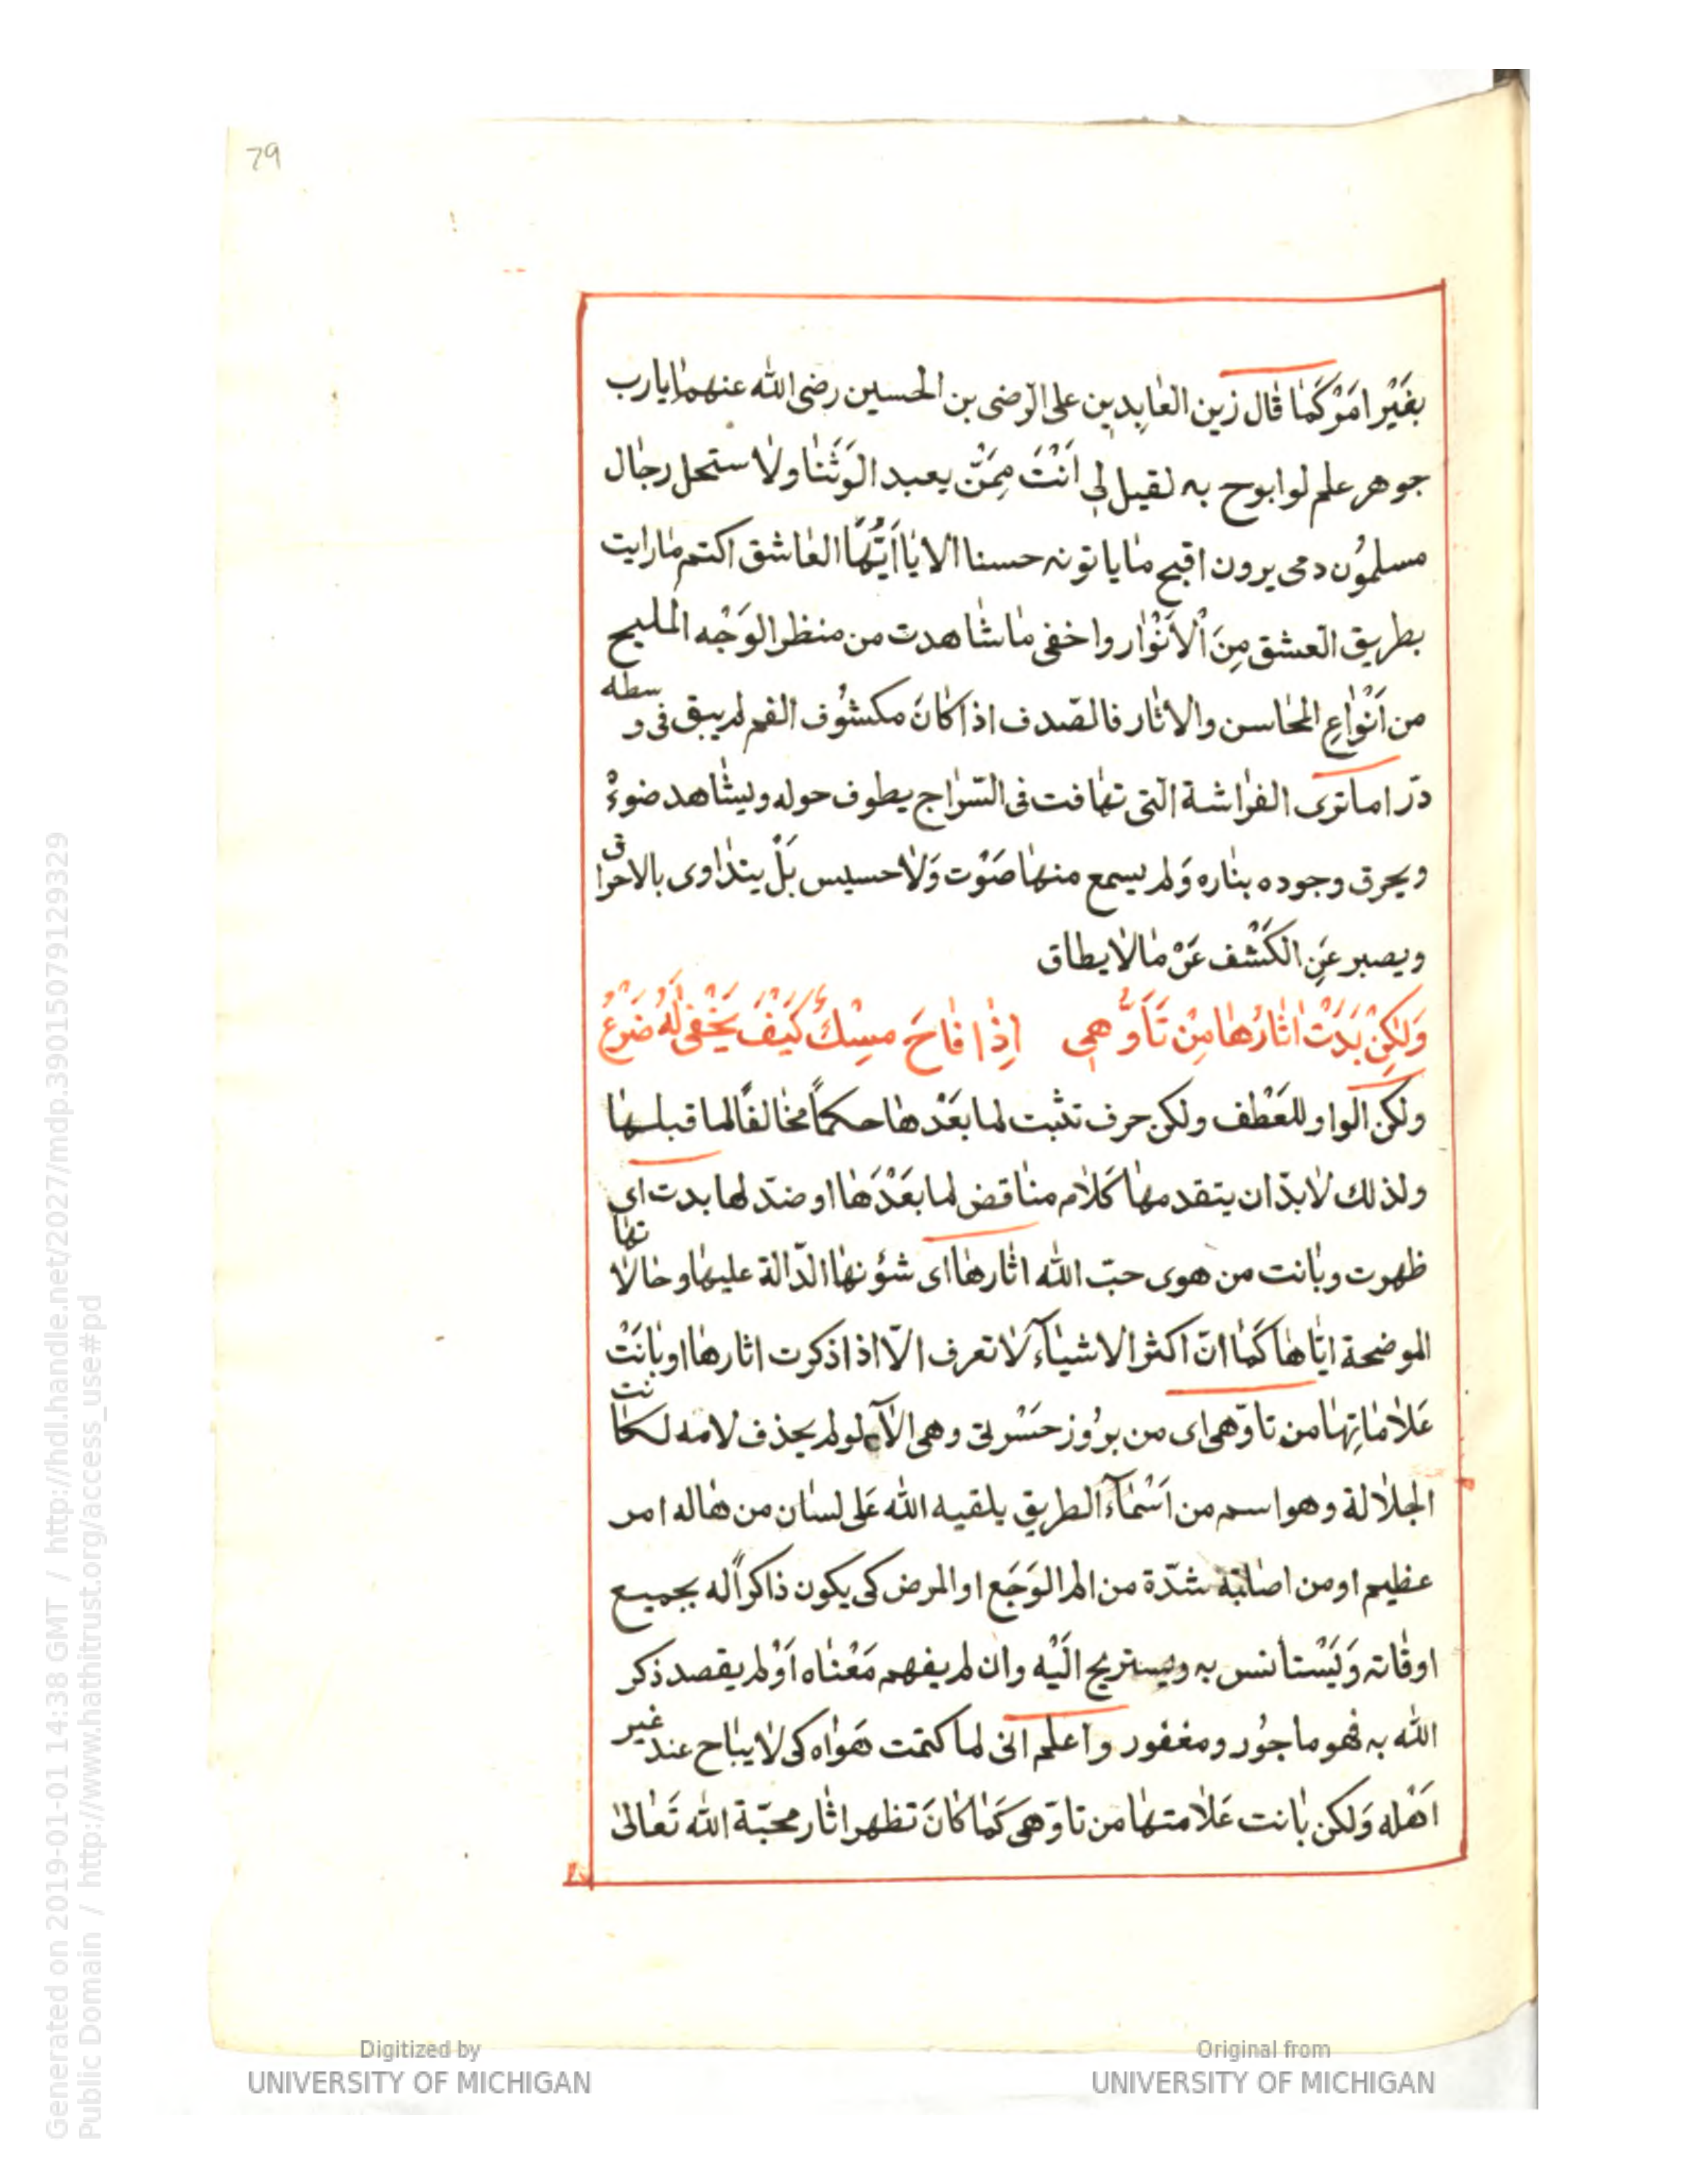 79
بغَيْر امَرْ كَمٰا قٰال زين العٰابدين على الرضى بن الحسين رضى الله عنهمٰا يارب
جوهر علم لوابوح به لقيل لى اَنْتَ مِمَنّ يعبد الوَثَنٰا ولٰا ستحل رجٰال
مسلموُن دمى يرون اقبح مٰا ياتونه حسنا الا يٰا اَيُّهَا العٰاشق اكتم مٰارايت
بطريق العشق مِنَ اْلاَنْوٰار واخفى مٰاشٰاهدت من منظر الوَجْه المليح
من اَنْوٰاعِ المحٰاسن والاثٰار فالصّدف اذا كٰانَ مكشوُف الفم لم يبق فى وسطه
درّ اما ترى الفرٰاشة الّتى تهٰافت فى السّرٰاج يطوف حوله ويشٰاهد ضوءْ
ويحرق وجوده بنٰاره وَلم يسمع منهٰا صَوْت وَلٰا حسيس بَلْ يتدٰاوى بالاحرٰاق
ويصبر عَنِ الكَشْف عَنْ مٰالٰا يطاق
وَلٰكِنْ بَدَتْ اٰثٰارُهٰا مِنْ تَأَوُّهِى اِذٰا فٰاحَ مِسْكٌ كَيْفَ يَخْفٰى لَهُ ضَوْعُ
ولكن الوٰاو للعَطْف ولكن حرف تثبت لما بعَدْهٰا حكماً مخٰالفًا لما قبلهٰا
ولذلك لٰابدّ ان يتقدمهٰا كَلٰام منٰاقض لما بعَدْهَا اوضدّ لهٰا بدت اى
ظهرت وبٰانت من هوى حبّ الله اثٰارهٰا اى شؤنهٰا الدّالة عليهٰا وحٰالٰاتهٰا
الموضحة ايّٰاهٰا كَمٰا انّ اكثر الاشيٰآء لٰا تعرف الّا اذا ذكرت اثارهٰا اوبٰانَتْ
عَلٰامٰاتِهٰا من تاوّهى اى من برُوُز حَسْرتى وهى الاٰه لولم يحذف لامه لكٰانت
الجلٰالة وهو اسم من اَسْمٰآء الطريق يلقيه الله عَلى لسٰان من هٰاله امر
عظيم اومن اصٰابته شدّة من الم الوَجَع او المرض كى يكون ذاكراً له بجميع
اوقٰاته وَيَسْتأنس به ويستريح الَيْه وان لم يفهم مَعْنٰاه اَوْلم يقصد ذكر
الله به فهو مأجوُر ومغفور واعلم انى لما كتمت هَوٰاه كى لٰا يبٰاح عند غير
اَهْله وَلكن بٰانت عَلٰامتهٰا من تاوّهى كَمٰا كٰانَ تظهر اثٰار محبّة الله تَعٰالىٰ
Digitized by
UNIVERSITY OF MICHIGAN
Original from
UNIVERSITY OF MICHIGAN
Generated on 2019-01-01 14:38 GMT / http://hdl.handle.net/2027/mdp.39015079129329
Public Domain / http://www.hathitrust.org/access_use#pd